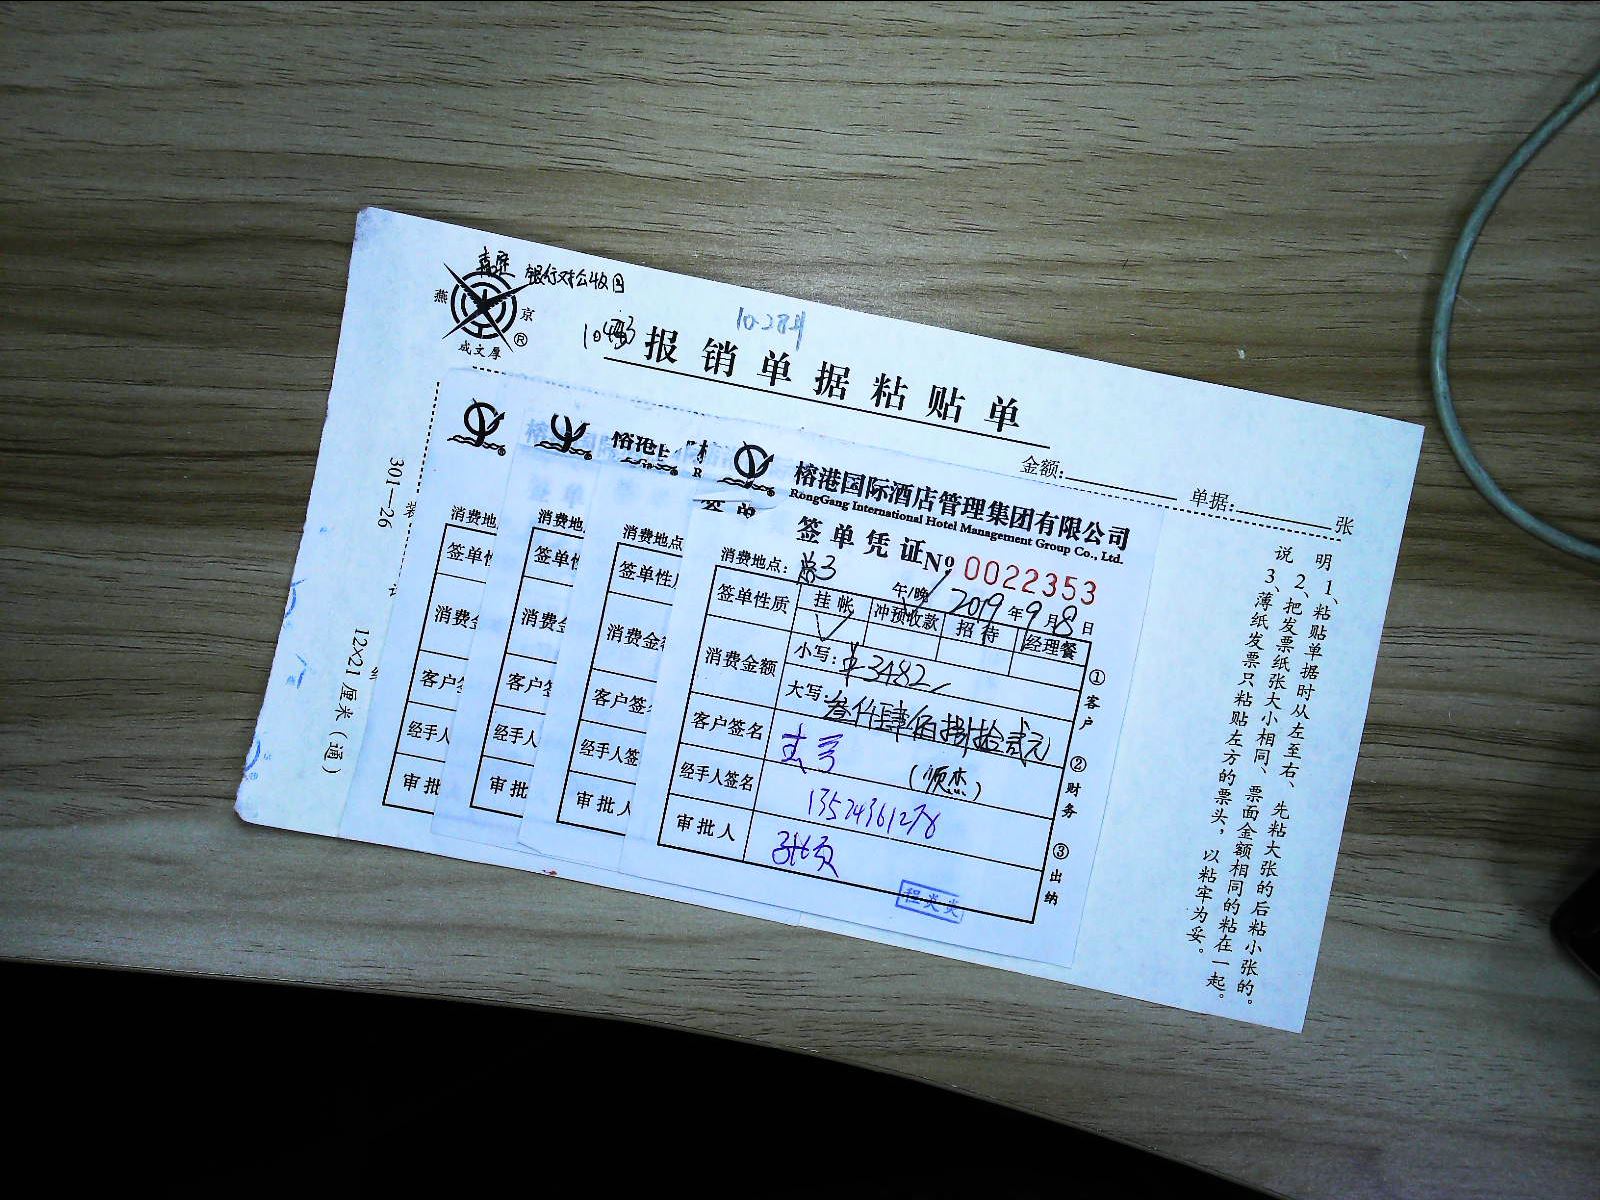 银行对公收
燕 京
®
成文厚
10-27
报销单据粘贴单
金额:
单据: 张
说明
1、粘贴单据时从左至右、先粘大张的后粘小张的。
2、把发票纸张大小相同、票面金额相同的粘在一起。
3、薄纸发票只粘贴左方的票头，以粘牢为妥。
301—26
装
12×21厘米（通）
消费地
签单性
消费金
客户签
经手人
审批
消费地
签单性
消费金
客户签
经手人
审批
消费地点
签单性质
消费金额
客户签
经手人签
审批人
榕港国际酒店管理集团有限公司
RongGang International Hotel Management Group Co., Ltd.
签单凭证 № 0022353
消费地点: 3
午/晚 2019年9月8日
签单性质 挂帐 冲预收款 招待 经理餐
✓
消费金额 小写: ¥3482
大写: 叁仟肆佰捌拾贰元
客户签名
(顺杰)
经手人签名 13574361278
审批人
程炎炎
①客户
②财务
③出纳